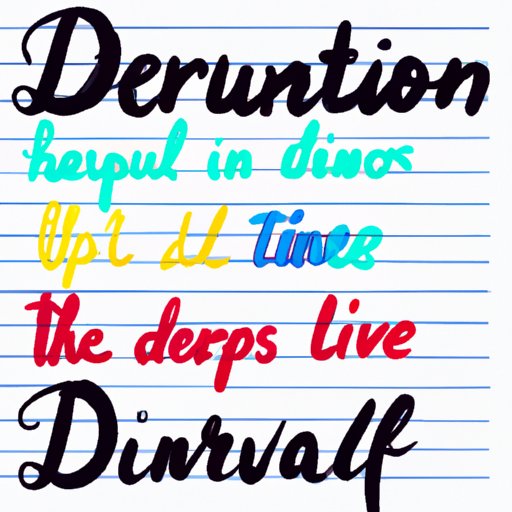 Deruntion
heepul in dinos
Upt dd Tines
The derps live
Dinrvalf